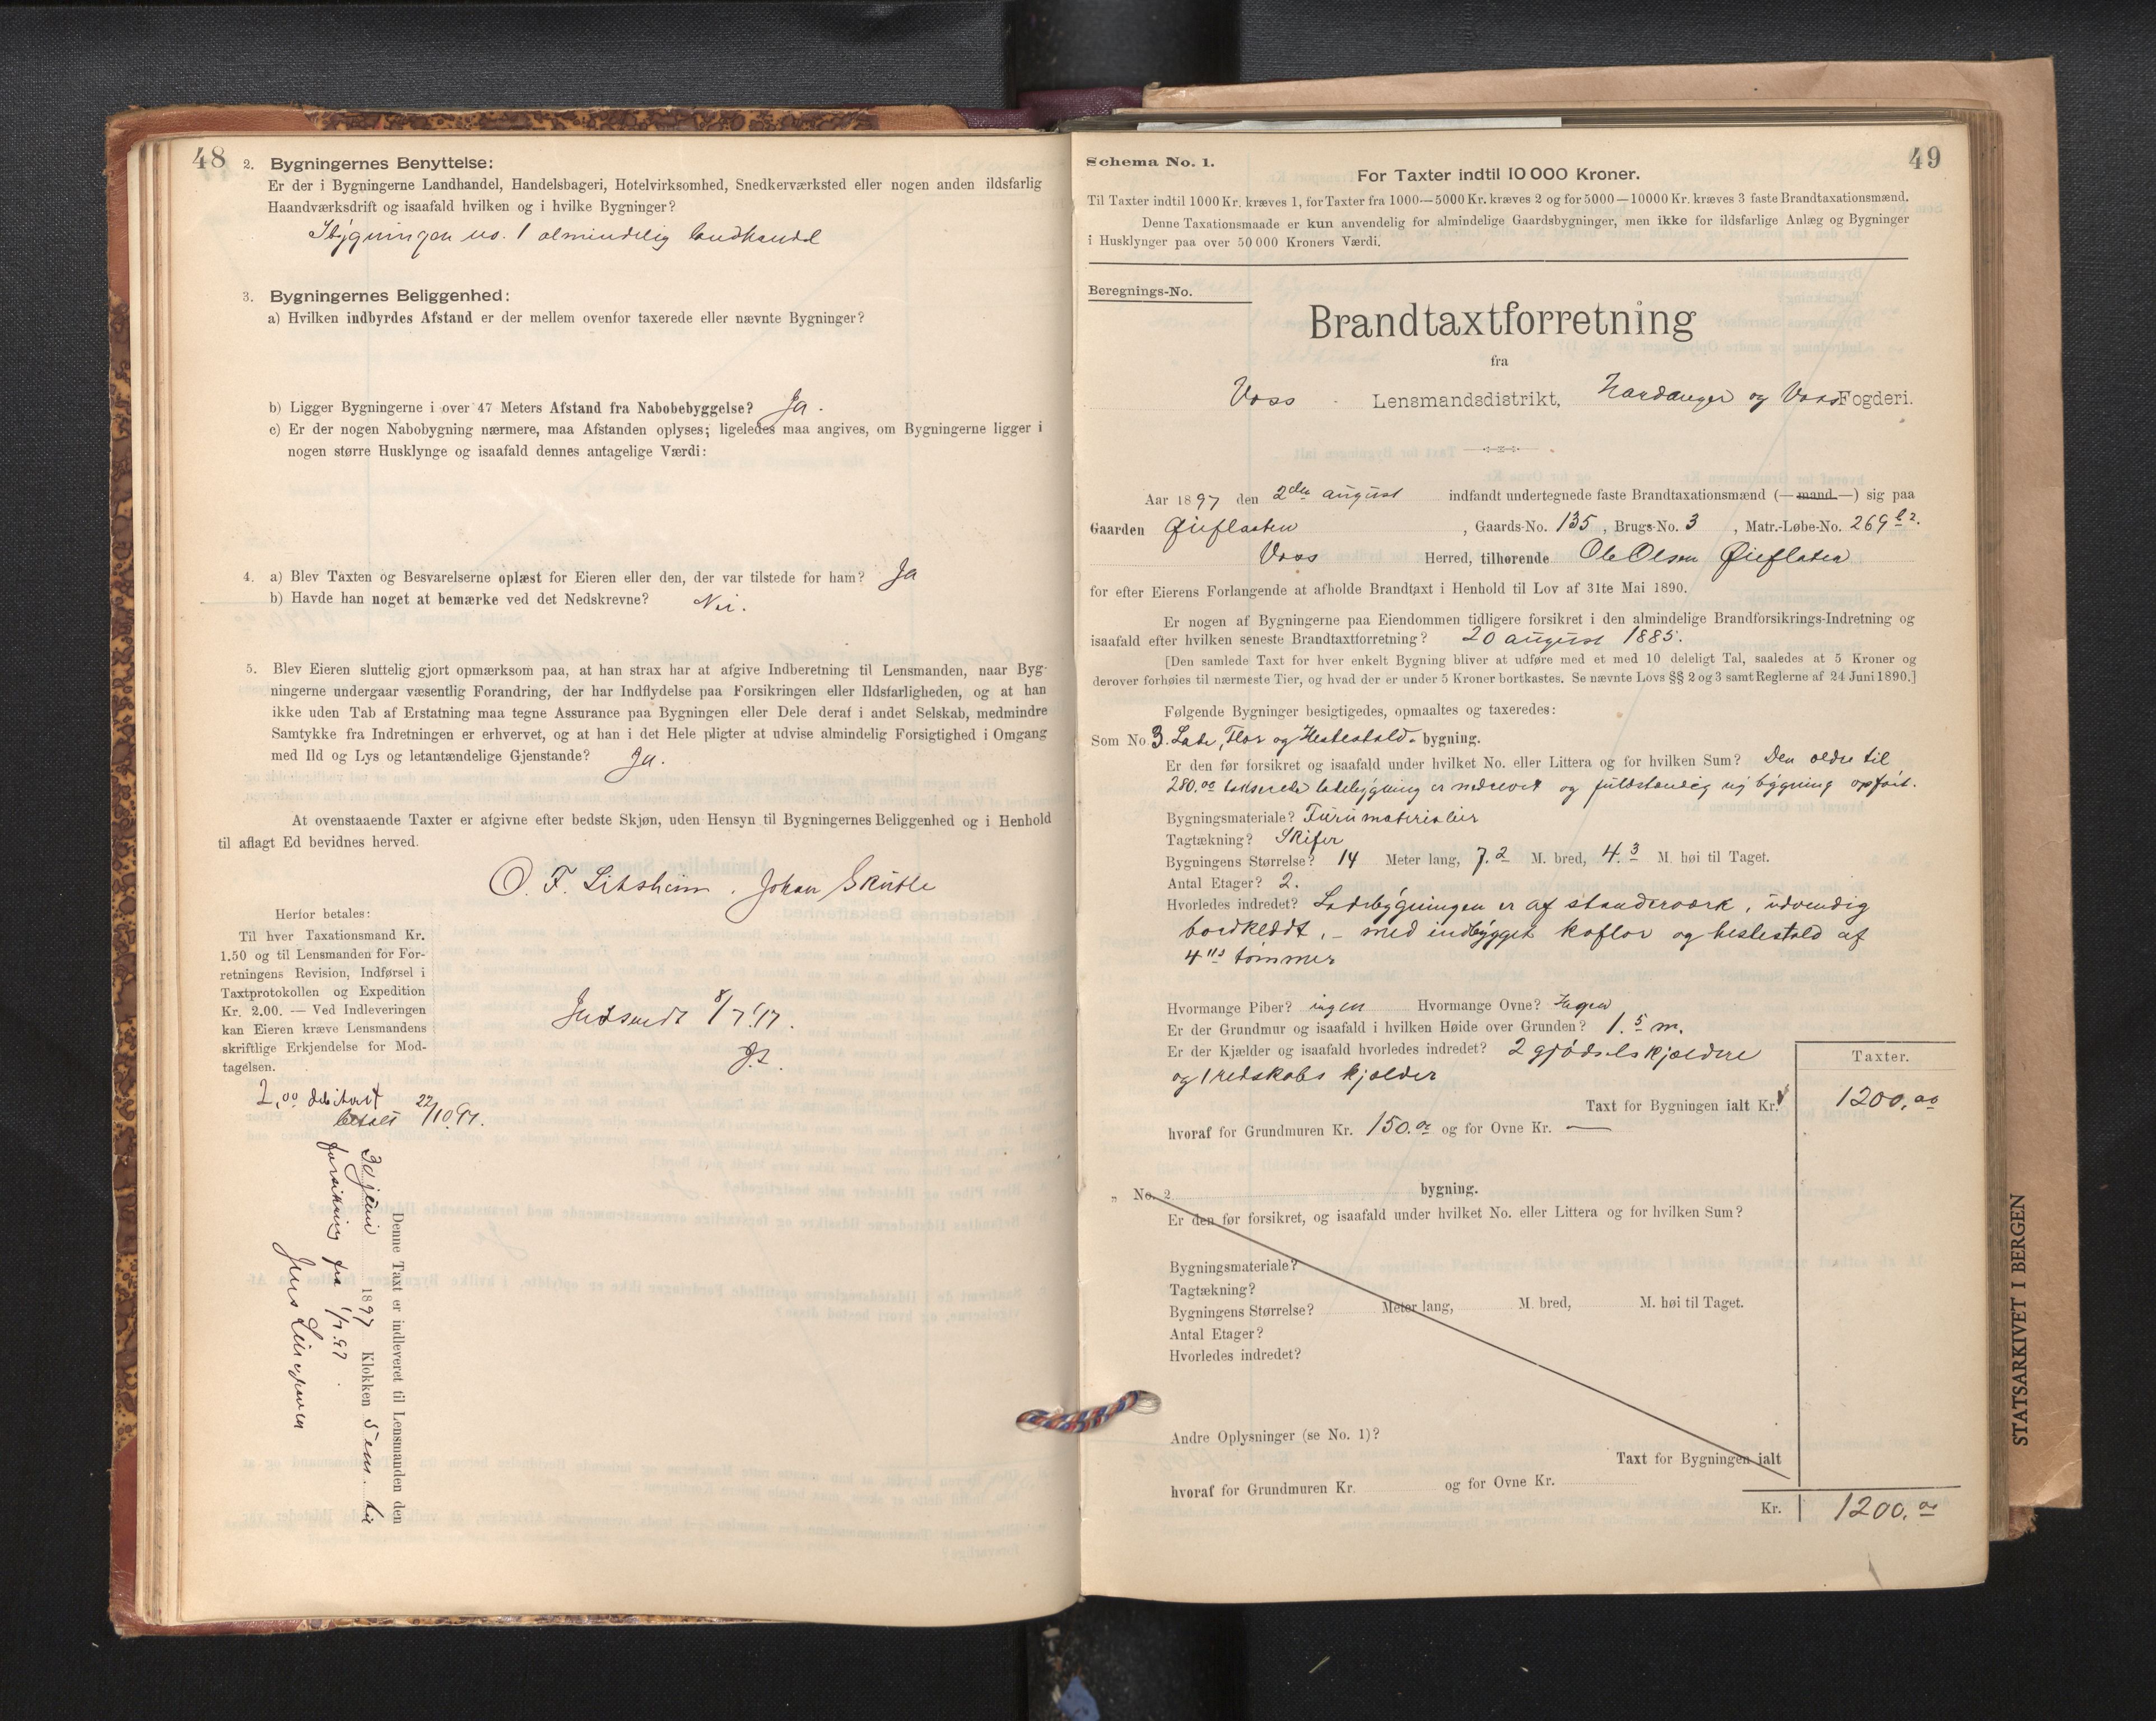 48
2. Bygningernes Benyttelse:
Er der i Bygningerne Landhandel, Handelsbageri, Hotelvirksomhed, Snedkerværksted eller nogen anden ildsfarlig
Haandværksdrift og isaafald hvilken og i hvilke Bygninger?
I bygningen no. 1 almindelig landhandel
3. Bygningernes Beliggenhed:
a) Hvilken indbyrdes Afstand er der mellem ovenfor taxerede eller nævnte Bygninger?
b) Ligger Bygningerne i over 47 Meters Afstand fra Nabobebyggelse? Ja.
c) Er der nogen Nabobygning nærmere, maa Afstanden oplyses; ligeledes maa angives, om Bygningerne ligger i
nogen større Husklynge og isaafald dennes antagelige Værdi:
4. a) Blev Taxten og Besvarelserne oplæst for Eieren eller den, der var tilstede for ham? Ja
b) Havde han noget at bemærke ved det Nedskrevne? Nei.
5. Blev Eieren sluttelig gjort opmærksom paa, at han strax har at afgive Indberetning til Lensmanden, naar Byg-
ningerne undergaar væsentlig Forandring, der har Indflydelse paa Forsikringen eller Ildsfarligheden, og at han
ikke uden Tab af Erstatning maa tegne Assurance paa Bygningen eller Dele deraf i andet Selskab, medmindre
Samtykke fra Indretningen er erhvervet, og at han i det Hele pligter at udvise almindelig Forsigtighed i Omgang
med Ild og Lys og letantændelige Gjenstande? Ja.
At ovenstaaende Taxter er afgivne efter bedste Skjøn, uden Hensyn til Bygningernes Beliggenhed og i Henhold
til aflagt Ed bevidnes herved.
Johan Skutle
Herfor betales:
Til hver Taxationsmand Kr.
1.50 og til Lensmanden for For-
retningens Revision, Indførsel i
Taxtprotokollen og Expedition
Kr. 2.00. — Ved Indleveringen
kan Eieren kræve Lensmandens
skriftlige Erkjendelse for Mod-
tagelsen.
Indsendt 8/7 97.
2,00 debiteret
betalt 22/10 97.
Denne Taxt er indleveret til Lensmanden den
30 juni 1897 Klokken 5 em.
forsikring fra 1/7 97.
Jens
49
Schema No. 1.
For Taxter indtil 10 000 Kroner.
Til Taxter indtil 1000 Kr. kræves 1, for Taxter fra 1000—5000 Kr. kræves 2 og for 5000—10000 Kr. kræves 3 faste Brandtaxationsmænd.
Denne Taxationsmaade er kun anvendelig for almindelige Gaardsbygninger, men ikke for ildsfarlige Anlæg og Bygninger
i Husklynger paa over 50 000 Kroners Værdi.
Beregnings-No.
Brandtaxtforretning
fra
Voss Lensmandsdistrikt, Hardanger og Voss Fogderi.
Aar 1897 den 2den august indfandt undertegnede faste Brandtaxationsmænd (—mand—) sig paa
Gaarden Øieflaten, Gaards-No. 135, Brugs-No. 3, Matr.-Løbe-No. 269 b 2.
Voss Herred, tilhørende Ole Olsen Øieflaten
for efter Eierens Forlangende at afholde Brandtaxt i Henhold til Lov af 31te Mai 1890.
Er nogen af Bygningerne paa Eiendommen tidligere forsikret i den almindelige Brandforsikrings-Indretning og
isaafald efter hvilken seneste Brandtaxtforretning? 20 august 1885.
[Den samlede Taxt for hver enkelt Bygning bliver at udføre med et med 10 deleligt Tal, saaledes at 5 Kroner og
derover forhøies til nærmeste Tier, og hvad der er under 5 Kroner bortkastes. Se nævnte Lovs §§ 2 og 3 samt Reglerne af 24 Juni 1890.]
Følgende Bygninger besigtigedes, opmaaltes og taxeredes:
Som No. 3. Lade, Flor og Hestestald-bygning.
Er den før forsikret og isaafald under hvilket No. eller Littera og for hvilken Sum? Den ældre til
280.00 takserede ladebygning er nedrevet og fuldstændig ny bygning opført.
Bygningsmateriale? Furumaterialier
Tagtækning? Skifer
Bygningens Størrelse? 14 Meter lang, 7.2 M. bred, 4.3 M. høi til Taget.
Antal Etager? 2.
Hvorledes indredet? Ladebygningen er af standerværk, udvendig
bordklædt, – med indbygget koflor og hestestald af
4" tømmer
Hvormange Piber? ingen Hvormange Ovne? Ingen
Er der Grundmur og isaafald i hvilken Høide over Grunden? 1.5 m.
Er der Kjælder og isaafald hvorledes indredet? 2 gjødselskjældere
og 1 redskabs kjælder
Taxter.
Taxt for Bygningen ialt Kr. 1200,00
hvoraf for Grundmuren Kr. 150.00 og for Ovne Kr. —
„ No. 2 bygning.
Er den før forsikret, og isaafald under hvilket No. eller Littera og for hvilken Sum?
Bygningsmateriale?
Tagtækning?
Bygningens Størrelse? Meter lang, M. bred, M. høi til Taget.
Antal Etager?
Hvorledes indredet?
Andre Oplysninger (se No. 1)?
Taxt for Bygningen ialt
hvoraf for Grundmuren Kr. og for Ovne Kr.
Kr. 1200,00
STATSARKIVET I BERGEN